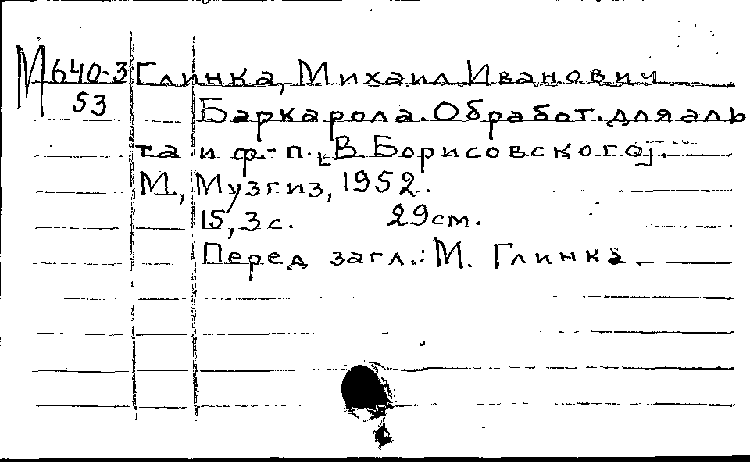 М 640-3 Глинка, Михаил Иванович
53 Баркарола. Обработ. для аль
та и ф.-п. [В. Борисовского].
М., Музгиз, 1952.
15, 3 с. 29 см.
Перед загл.: М. Глинка.